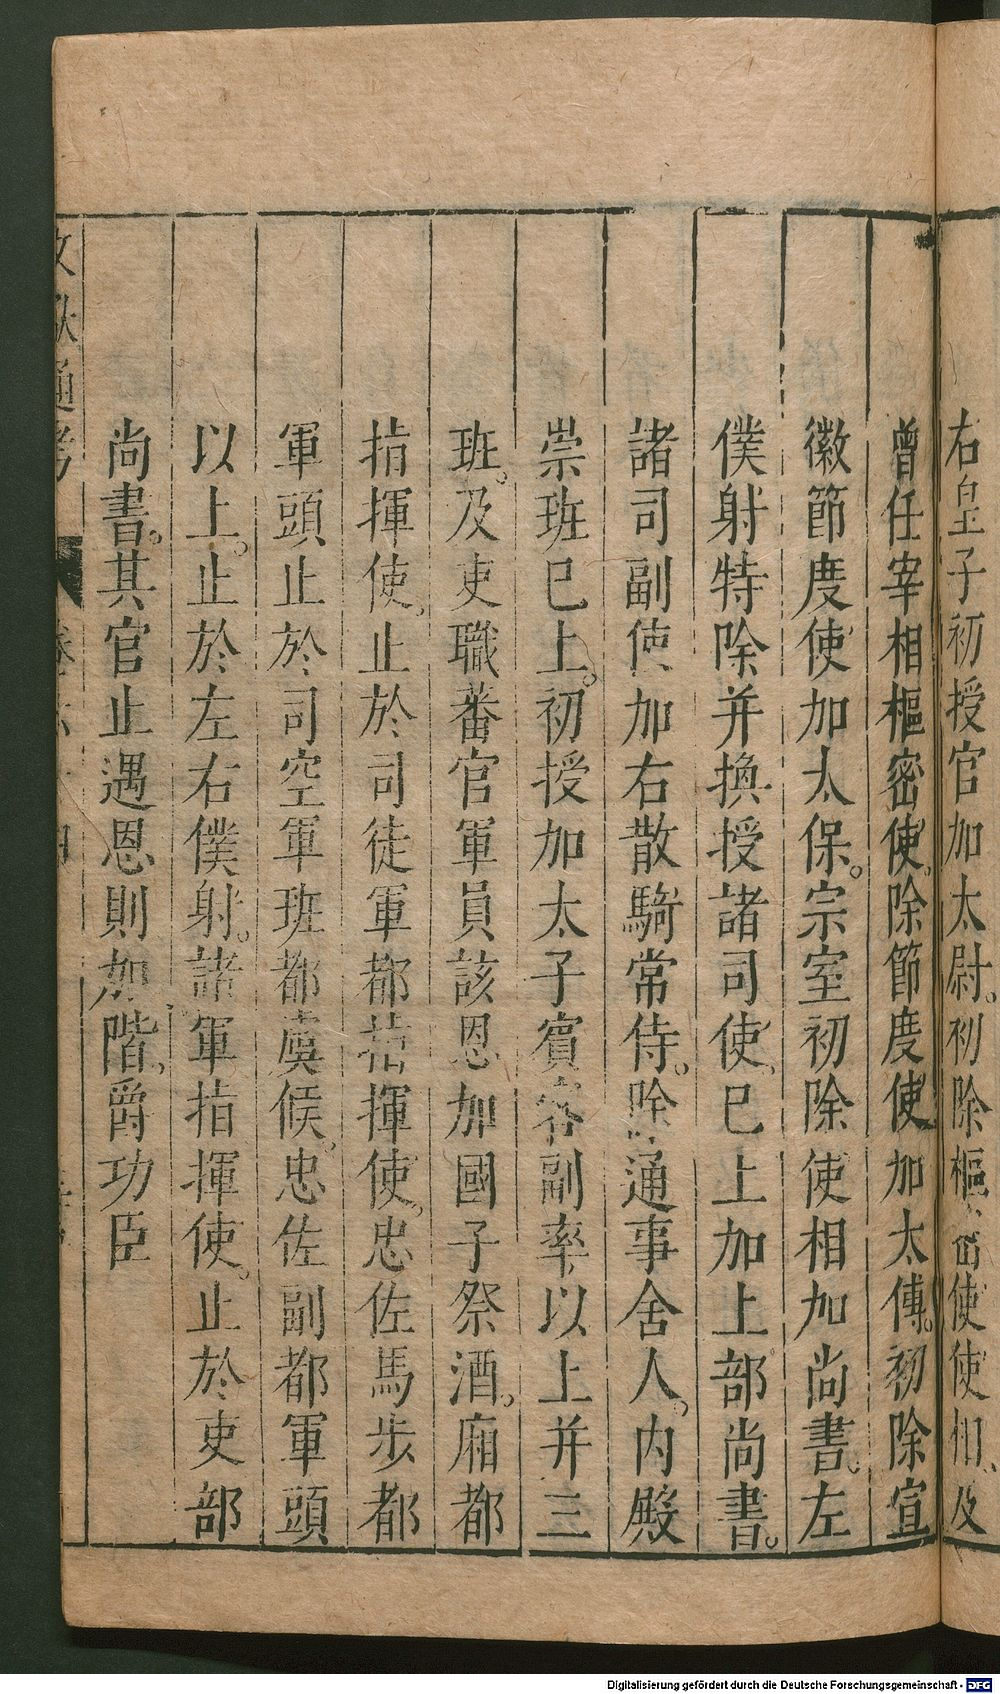 右皇子初授官加太尉。初除樞密使使相、及
曾任宰相樞密使、除節度使加太傅。初除宣
徽節度使加太保。宗室初除使相加尚書。左
僕射特除并換授諸司使、巳上加上部尚書。
諸司副使加右散騎常侍。除通事舍人。內殿
崇班巳上。初授加太子賓客副率、以上并三
班。及吏職番官軍員該恩加國子祭酒。廂都
指揮使、止於司徒軍都指揮使。忠佐馬步都
軍頭止於司空軍班都虞候、忠佐副都軍頭
以上。止於左右僕射。諸軍指揮使。止於吏部
尚書。其官止遇恩則加階、爵功臣
文獻通考 卷六十四
Digitalisierung gefördert durch die Deutsche Forschungsgemeinschaft - DFG